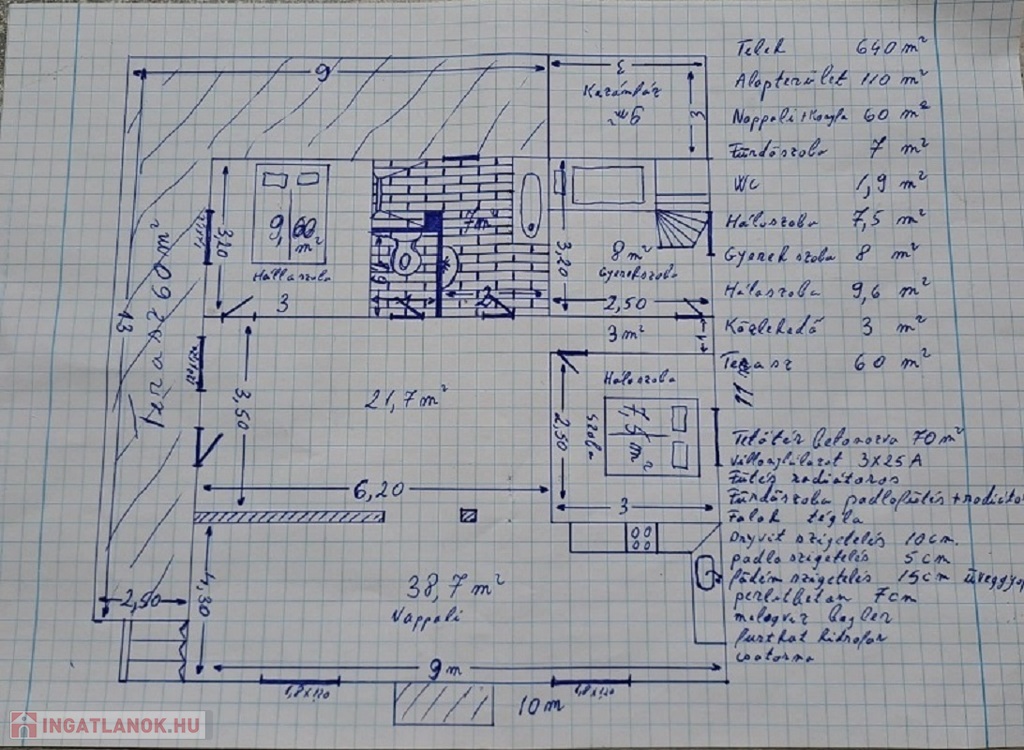 Telek 640 m²
Alapterület 110 m²
Nappali+Konyha 60 m²
Fürdőszoba 7 m²
WC 1,9 m²
Hálószoba 7,5 m²
Gyerek szoba 8 m²
Hálószoba 9,6 m²
Közlekedő 3 m²
Terasz 60 m²
Tetőtér betonozva 70 m²
Villanyhálózat 3x25A
Fűtés radiátoros
Fürdőszoba padlofűtés+radiátor
Falak tégla
Dryvit szigetelés 10cm.
padlo szigetelés 5cm
födém szigetelés 15cm üveggya
perlitbeton 7cm
melegvíz bojler
furtkut hidrofor
csatorna
9
3
Kazánház
9m²
3
13
Terasz 60m²
3,20
9,60 m²
Hálószoba
3
7m²
1,9
2
3,20
8m²
Gyerekszoba
2,50
3m²
1
3,50
21,7m²
6,20
Hálószoba
7,5 m²
szoba
2,50
3
11
2,50
4,30
38,7m²
Nappali
9m
1,8x1,20
1,8x1,20
10m
INGATLANOK.HU